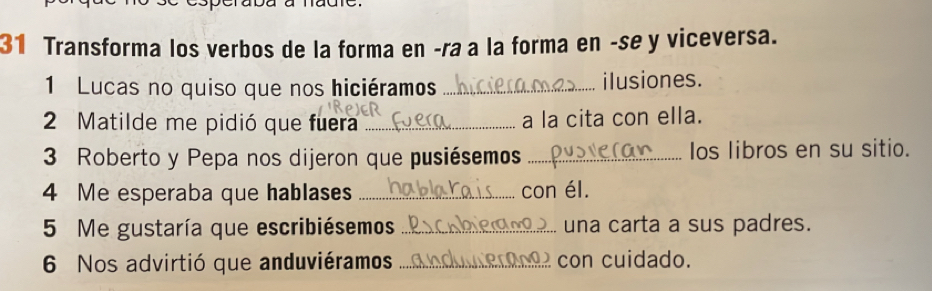 porque no se esperaba a nadie.
31 Transforma los verbos de la forma en -ra a la forma en -se y viceversa.
1 Lucas no quiso que nos hiciéramos hicieramos ilusiones.
2 Matilde me pidió que fuera fuera a la cita con ella.
3 Roberto y Pepa nos dijeron que pusiésemos pusieran los libros en su sitio.
4 Me esperaba que hablases hablarais con él.
5 Me gustaría que escribiésemos escribieramos una carta a sus padres.
6 Nos advirtió que anduviéramos anduvieramos con cuidado.